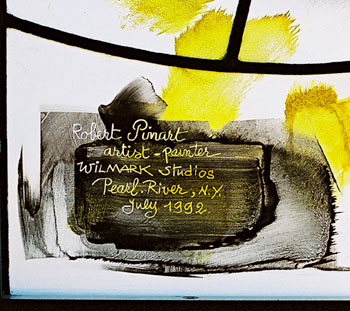 Robert Pinart
artist-painter
WILMARK Studios
Pearl River, N.Y.
July 1992.